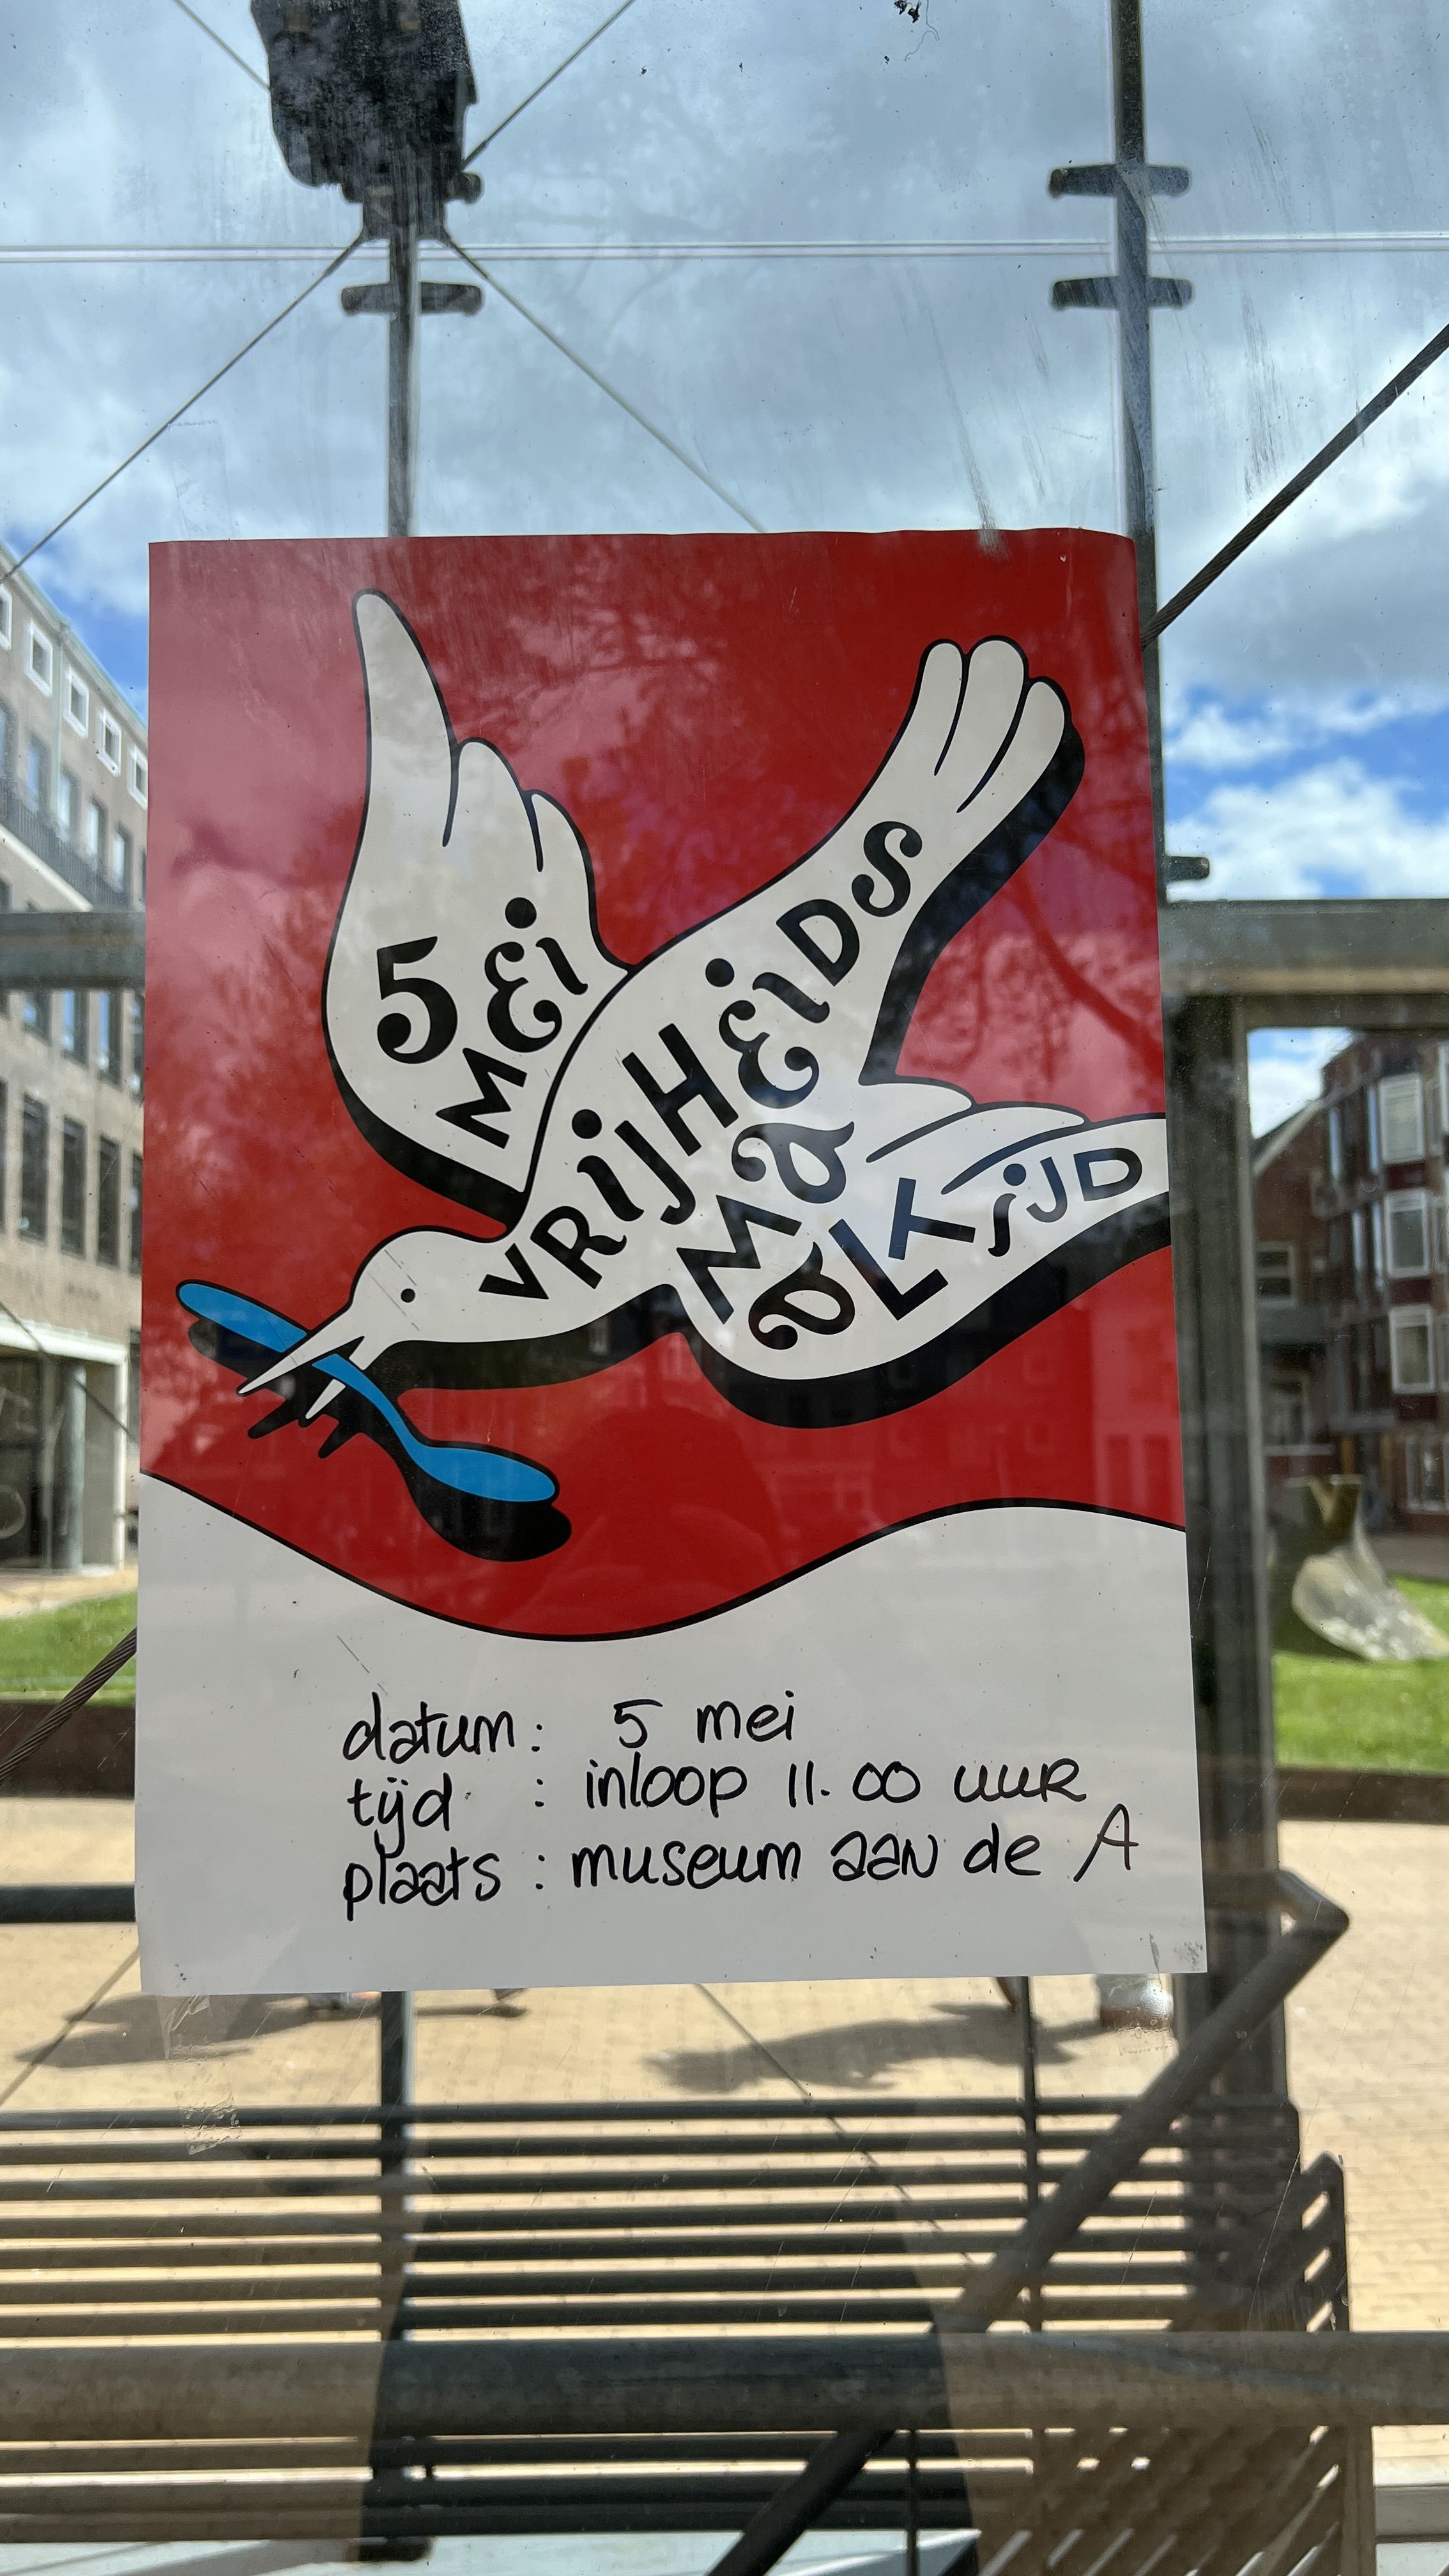 5 MEI
VRIJHEIDS
MAALTIJD
datum: 5 mei
tijd : inloop 11.00 uur
plaats : museum aan de A